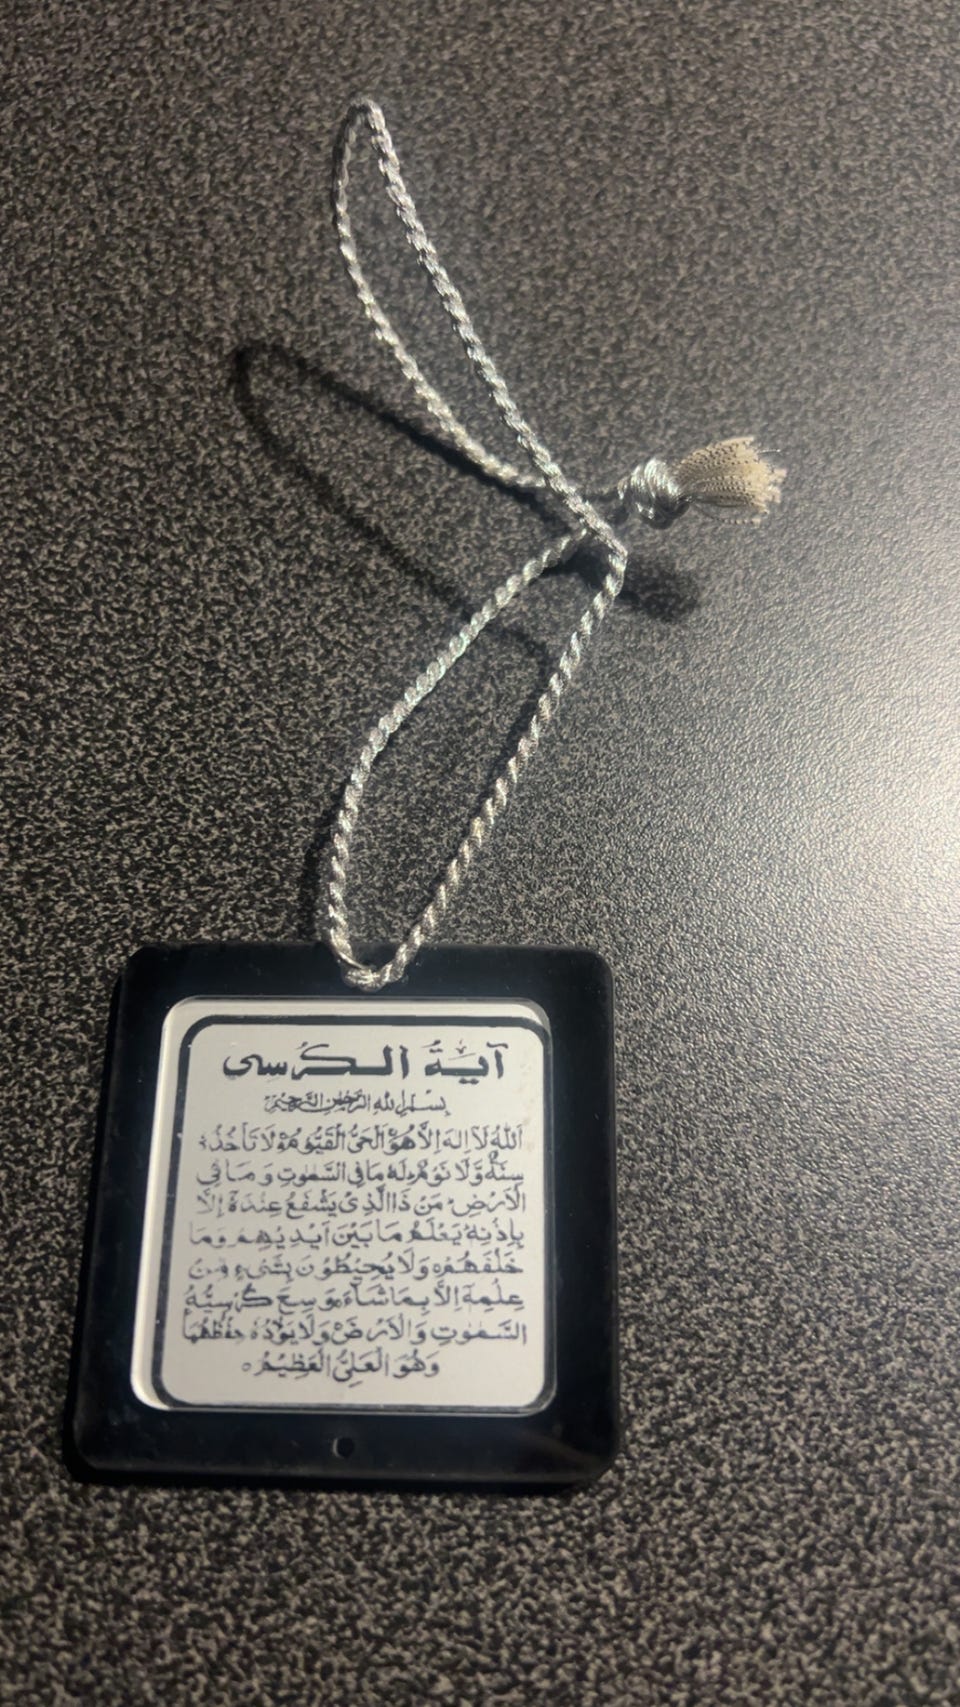 آيَةُ الكُرسى
بِسْمِ اللهِ الرَّحْمٰنِ الرَّحِيْمِ
اَللهُ لَآ اِلٰهَ اِلَّا هُوَ اَلْحَىُّ الْقَيُّوْمُ ەۚ لَا تَاْخُذُهٗ
سِنَةٌ وَّلَا نَوْمٌ ؕ لَهٗ مَا فِى السَّمٰوٰتِ وَمَا فِى
الْاَرْضِ ؕ مَنْ ذَا الَّذِىْ يَشْفَعُ عِنْدَهٗٓ اِلَّا
بِاِذْنِهٖ ؕ يَعْلَمُ مَا بَيْنَ اَيْدِيْهِمْ وَمَا
خَلْفَهُمْ ۚ وَلَا يُحِيْطُوْنَ بِشَىْءٍ مِّنْ
عِلْمِهٖٓ اِلَّا بِمَا شَآءَ ۚ وَسِعَ كُرْسِيُّهُ
السَّمٰوٰتِ وَالْاَرْضَ ۚ وَلَا يَؤُدُهٗ حِفْظُهُمَا
وَهُوَ الْعَلِىُّ الْعَظِيْمُ ○